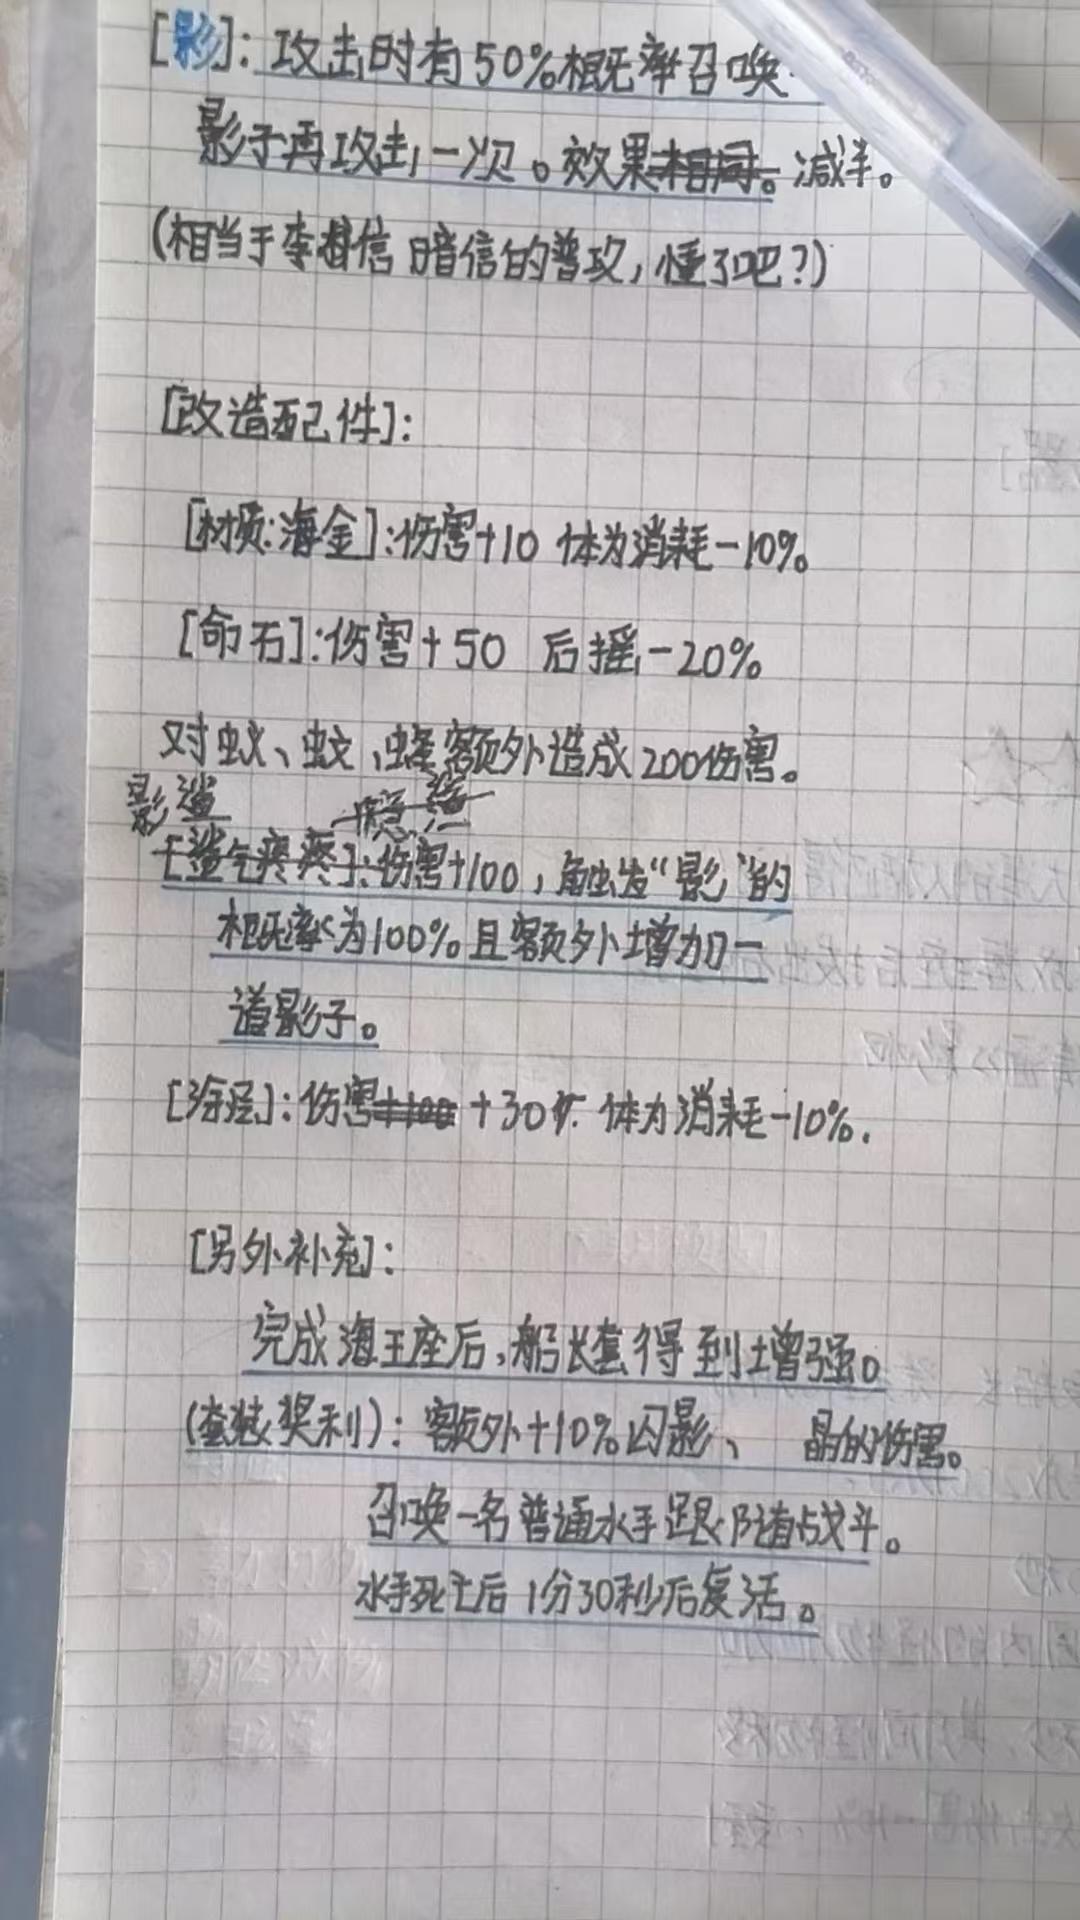 [影]：攻击时有50%概率召唤
影子再攻击一次。效果相同。减半。
(相当于李信暗信的普攻，懂了吧？)
[改造配件]：
[材质：海金]：伤害+10 体力消耗-10%。
[命石]：伤害+50 后摇-20%
对蚁、蚊、蜂额外造成200伤害。
影鲨
[鲨气疼疼]：伤害+100，触发“影”的
概率为100%且额外增加一
道影子。
[涂层]：伤害+100 +30 体力消耗-10%.
[另外补充]：
完成海王座后，船长套得到增强。
(套装奖利)：额外+10%闪影、 晶的伤害。
召唤一名普通水手跟随战斗。
水手死亡后1分30秒后复活。